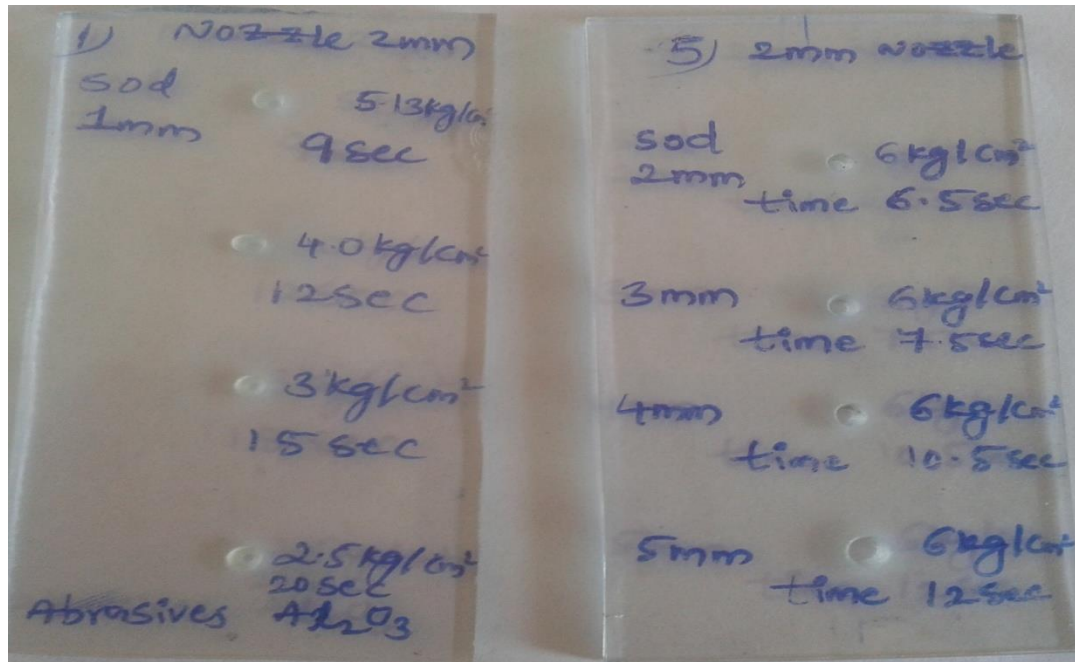 1) Nozzle 2mm
sod
1mm
5.13kg/c
9sec
4.0kg/cm²
12sec
3kg/cm²
15sec
2.5kg/cm²
20sec
Abrasives Al₂O₃
5) 2mm nozzle
sod
2mm
6kg/cm²
time 6.5sec
3mm 6kg/cm²
time 7.5sec
4mm 6kg/cm²
time 10.5sec
5mm 6kg/cm²
time 12sec